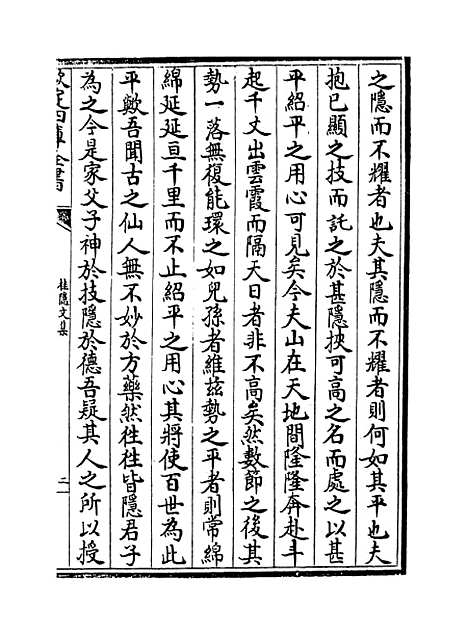 之隱而不耀者也夫其隱而不耀者則何如其平也夫
抱已顯之技而託之於甚隱挾可高之名而處之以甚
平紹平之用心可見矣今夫山在天地間隆隆奔赴斗
起千丈出雲霞而隔天日者非不高矣然數節之後其
勢一落無復能環之如兒孫者維兹勢之平者則常綿
綿延延亘千里而不止紹平之用心其將使百世為此
平歟吾聞古之仙人無不妙於方藥然徃徃皆隱君子
為之今是家父子神於技隱於德吾疑其人之所以授
欽定四庫全書
桂隱文集